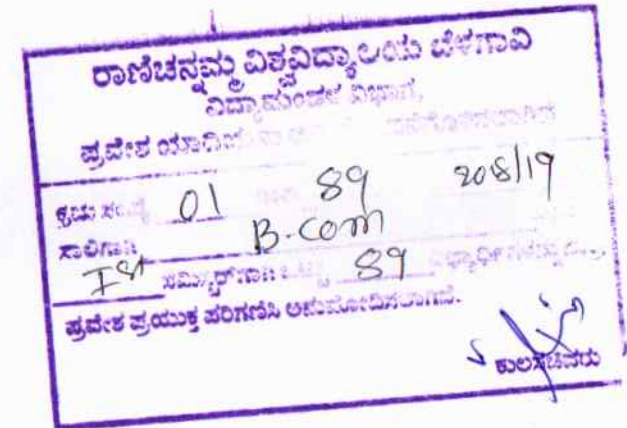 ರಾಣಿಚನ್ನಮ್ಮ ವಿಶ್ವವಿದ್ಯಾಲಯ ಬೆಳಗಾವಿ
ವಿದ್ಯಾಮಂಡಳ ವಿಭಾಗ,
ಪ್ರವೇಶ
ಕ್ರಮ ಸಂಖ್ಯೆ 01 89 2018/19
ಸಾಲಿಗಾಗಿ B.com
Ist ಸಮಿಸ್ಟರ್‌ಗಾಗಿ ಒಟ್ಟು 89
ಪ್ರವೇಶ ಪ್ರಯುಕ್ತ ಪರಿಗಣಿಸಿ ಅನುಮೋದಿಸಲಾಗಿದೆ.
ಕುಲಸಚಿವರು